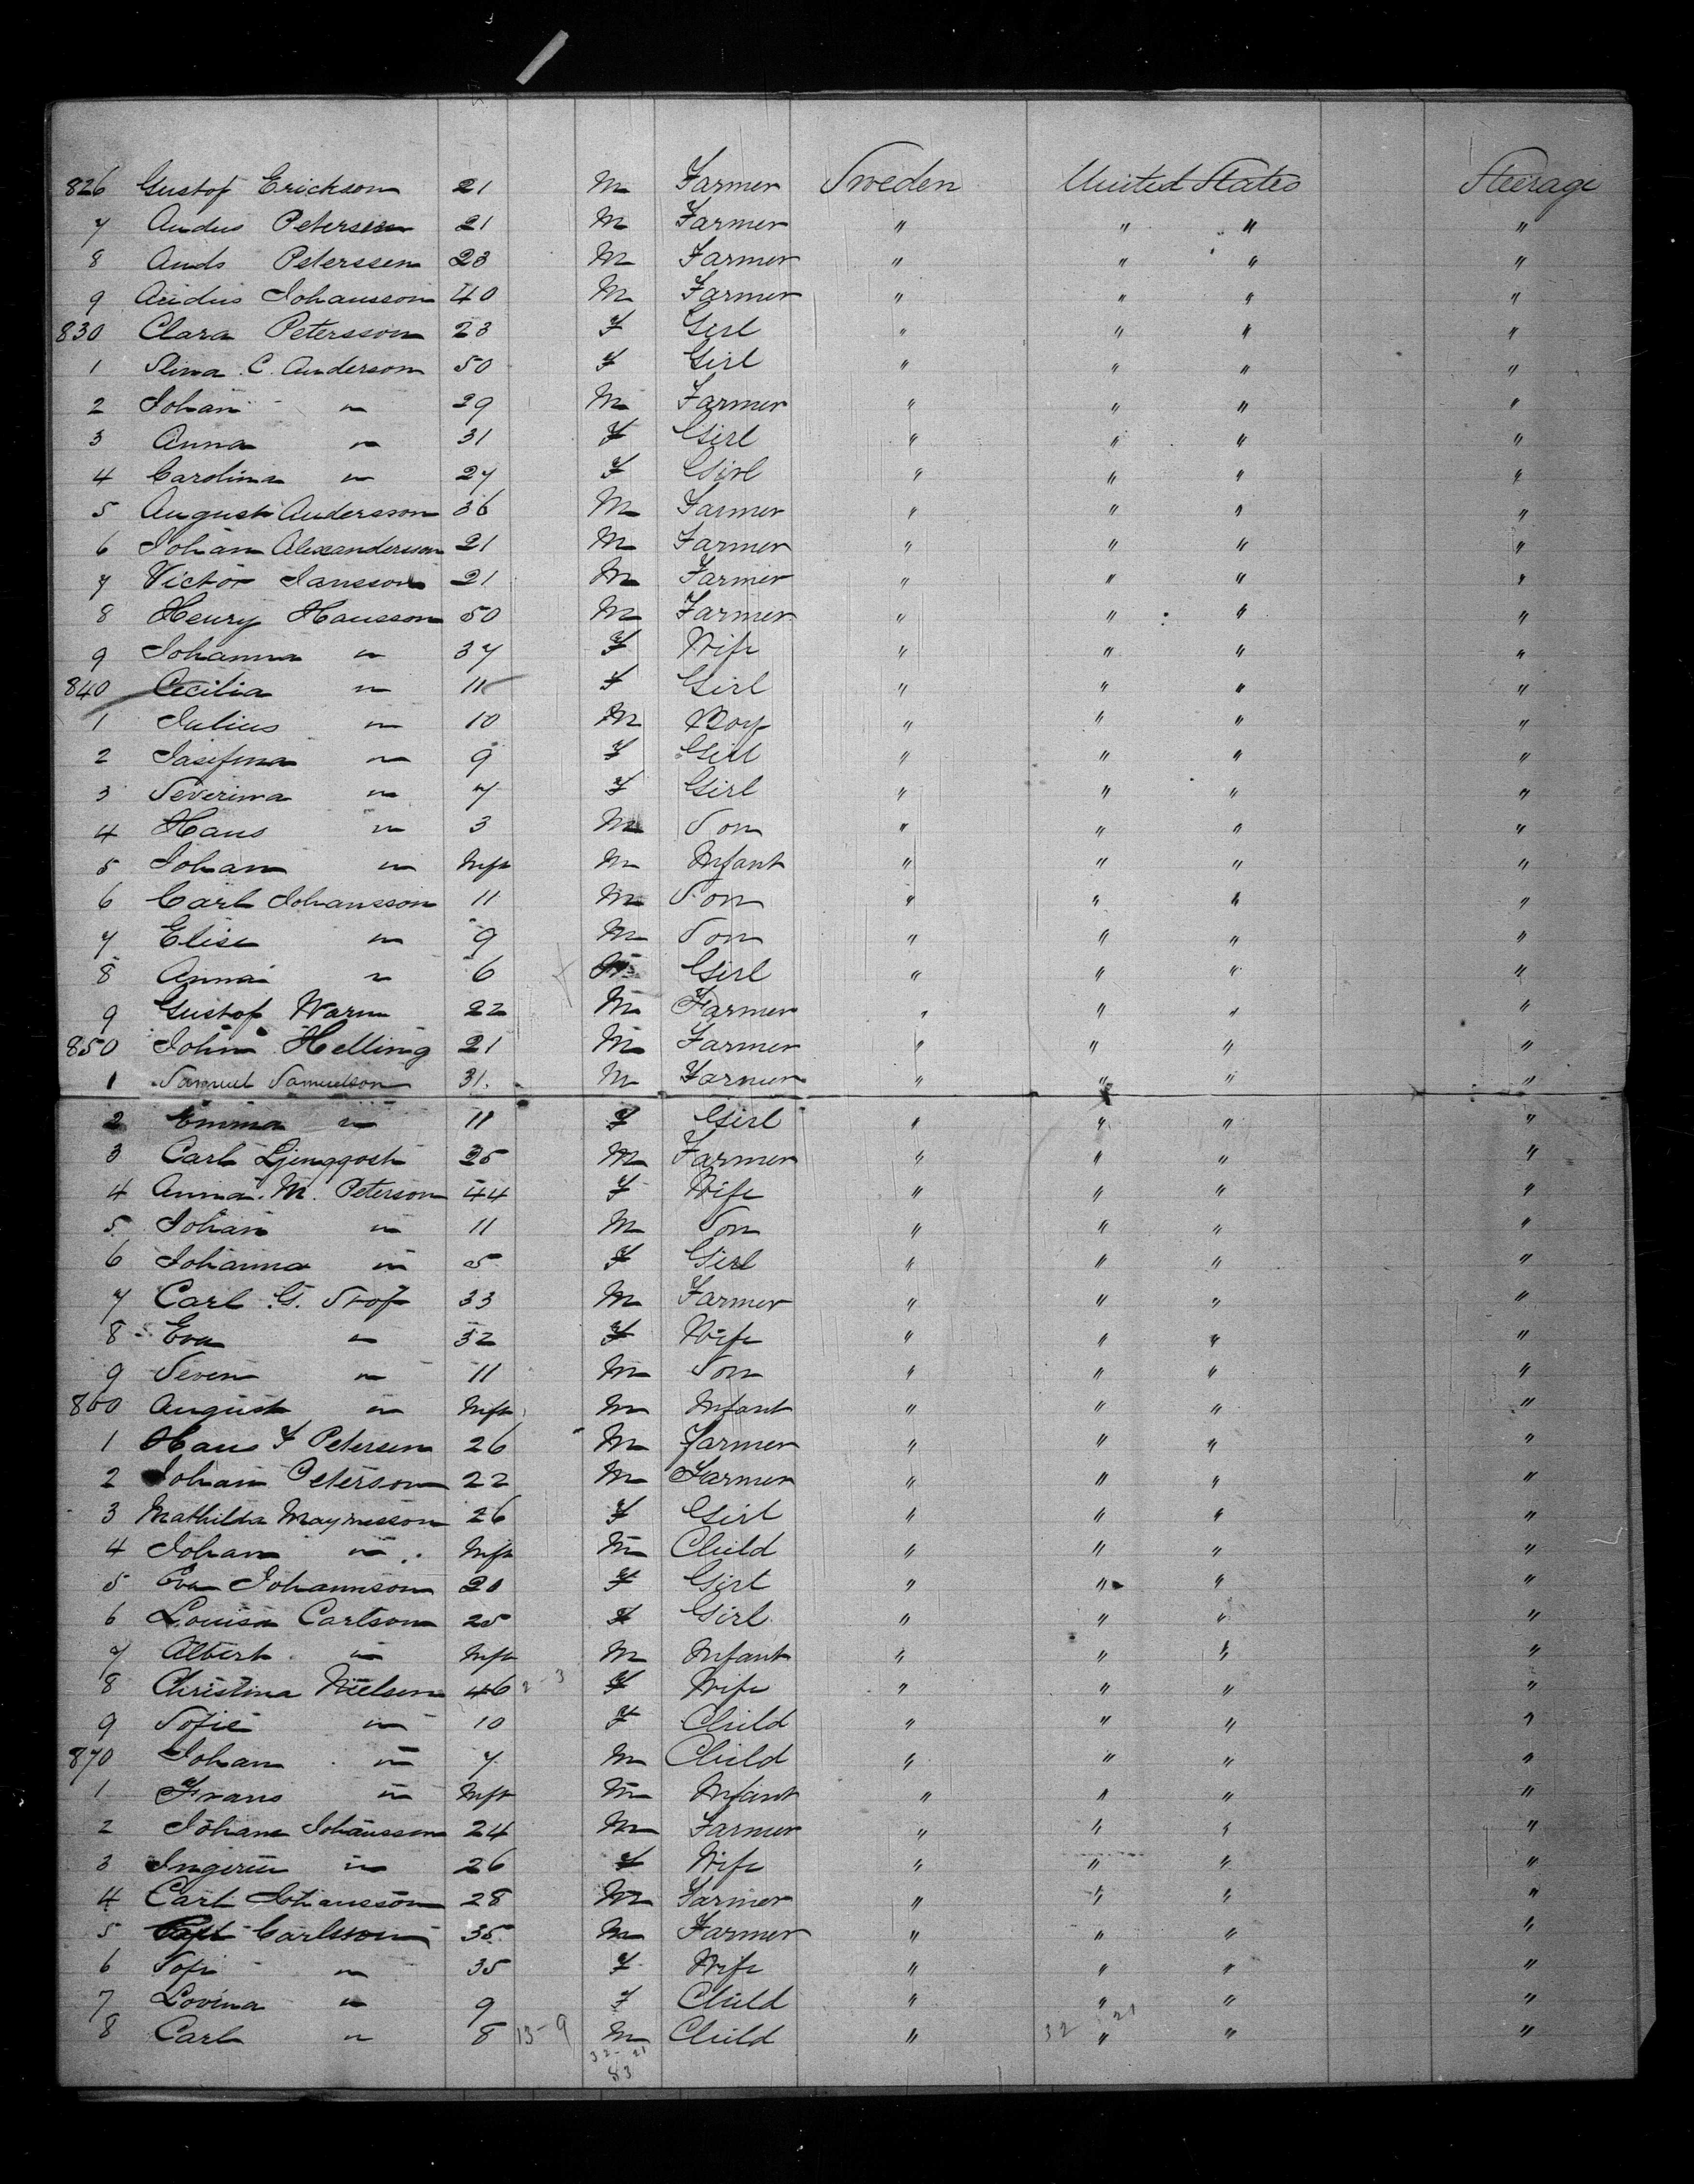 826 Gustof Erickson 21 M Farmer Sweden United States Steerage
7 Andus Petersen 21 M Farmer " " " "
8 Ands Peterssen 23 M Farmer " " " "
9 Andus Johansson 40 M Farmer " " " "
830 Clara Petersson 23 F Girl " " " "
1 Stina C. Anderson 50 F Girl " " " "
2 Johan " 29 M Farmer " " " "
3 Anna " 31 F Girl " " " "
4 Carolina " 27 F Girl " " " "
5 August Andersson 36 M Farmer " " " "
6 Johan Alexandersson 21 M Farmer " " " "
7 Victor Jansson 21 M Farmer " " " "
8 Henry Hansson 50 M Farmer " " " "
9 Johanna " 37 F Wife " " " "
840 Cecilia " 11 F Girl " " " "
1 Julius " 10 M Boy " " " "
2 Jasifina " 9 F Girl " " " "
3 Severina " 7 F Girl " " " "
4 Hans " 3 M Son " " " "
5 Johan " Inft M Infant " " " "
6 Carl Johansson 11 M Son " " " "
7 Elise " 9 M Son " " " "
8 Anna " 6 Girl " " " "
9 Gustof Warn 22 M Farmer " " " "
850 John Helling 21 M Farmer " " " "
1 Samuel Samuelson 31 M Farmer " " " "
2 Emma " 11 F Girl " " " "
3 Carl Ljungqost 25 M Farmer " " " "
4 Anna. M. Peterson 44 F Wife " " " "
5 Johan " 11 M Son " " " "
6 Johanna " 5 F Girl " " " "
7 Carl G. Srof 33 M Farmer " " " "
8 Eva " 32 F Wife " " " "
9 Seven " 11 M Son " " " "
860 August " Inft M Infant " " " "
1 Hans F Petersen 26 M Farmer " " " "
2 Johan Peterson 22 M Farmer " " " "
3 Mathilda Maynusson 26 F Girl " " " "
4 Johan " Inft M Child " " " "
5 Eva Johannson 20 F Girl " " " "
6 Louisa Carlson 25 F Girl " " " "
7 Albert " Inft M Infant " " " "
8 Christina Nielsen 46 2-3 F Wife " " " "
9 Sofie " 10 F Child " " " "
870 Johan " 7 M Child " " " "
1 Frans " Inft M Infant " " " "
2 Johan Johansson 24 M Farmer " " " "
3 " 26 F Wife " " " "
4 Carl Johansson 28 M Farmer " " " "
5 Carlsson 35 M Farmer " " " "
6 Sofi " 35 F Wife " " " "
7 Lovina " 9 F Child " " " "
8 Carl " 8 13-9 M Child " 32 " 21 " "
32-21
53